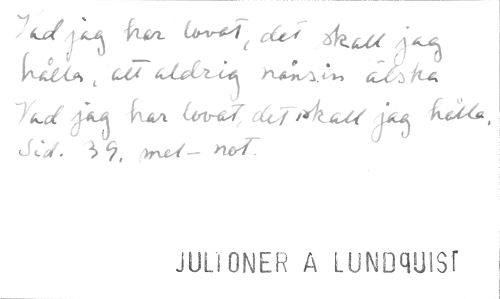 Vad jag har lovat, det skall jag
hålla, att aldrig nånsin älska
Vad jag har lovat, det skall jag hålla.
Sid. 39. mel – not.
JULTONER A LUNDQUIST